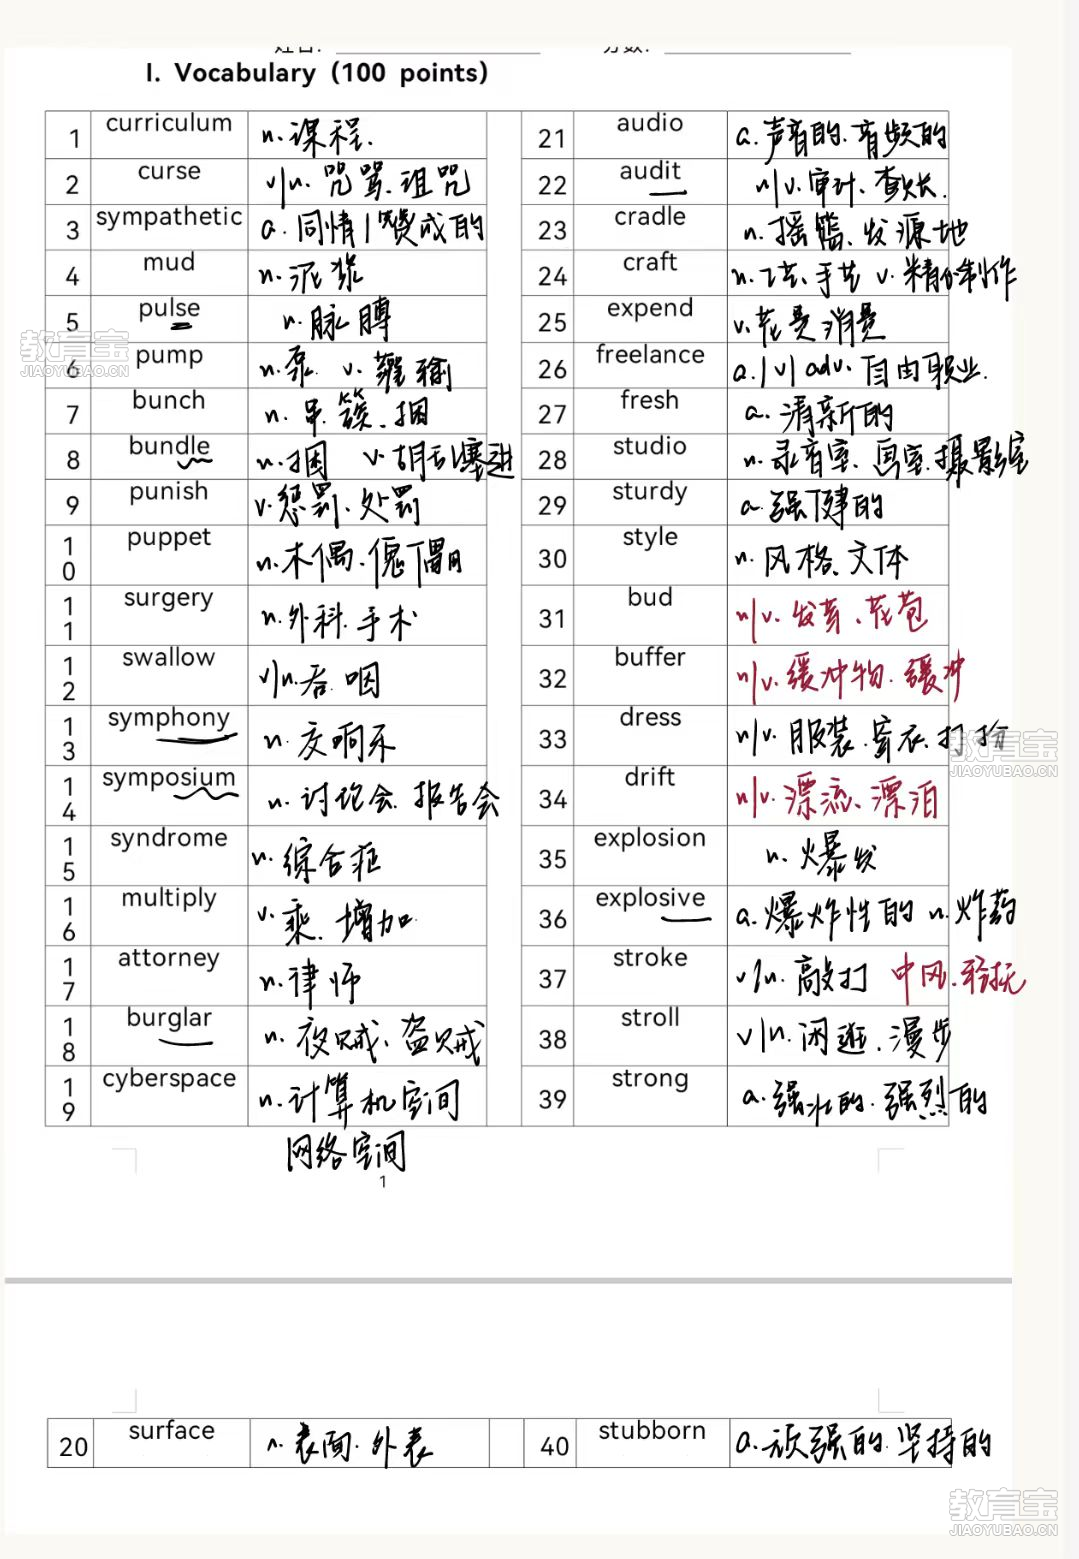 I. Vocabulary (100 points)
1 curriculum n. 课程.
2 curse v/n. 咒骂、诅咒
3 sympathetic a. 同情/赞成的
4 mud n. 泥浆
5 pulse n. 脉膊
6 pump n. 泵. v. 输
7 bunch n. 串、簇、捆
8 bundle n. 捆 v. 胡乱塞进
9 punish v. 惩罚、处罚
10 puppet n. 木偶、傀儡
11 surgery n. 外科 手术
12 swallow v/n. 吞 咽
13 symphony n. 交响乐
14 symposium n. 讨论会. 报告会
15 syndrome n. 综合症
16 multiply v. 乘. 增加
17 attorney n. 律师
18 burglar n. 夜贼、盗贼
19 cyberspace n. 计算机空间
网络空间
21 audio a. 声音的. 音频的
22 audit n/v. 审计、查账.
23 cradle n. 摇篮、发源地
24 craft n. 工艺、手艺 v. 精心制作
25 expend v. 花费 消费
26 freelance a./v/ adv. 自由职业.
27 fresh a. 清新的
28 studio n. 录音室、画室. 摄影室
29 sturdy a. 强健的
30 style n. 风格、文体
31 bud n/v. 发芽、花苞
32 buffer n/v. 缓冲物. 缓冲
33 dress n/v. 服装. 穿衣. 打扮
34 drift n/v. 漂流、漂泊
35 explosion n. 爆发
36 explosive a. 爆炸性的 n. 炸药
37 stroke v/n. 敲打 中风. 轻抚
38 stroll v/n. 闲逛. 漫步
39 strong a. 强壮的. 强烈的
1
20 surface n. 表面. 外表
40 stubborn a. 顽强的. 坚持的
教育宝
JIAOYUBAO.CN
教育宝
JIAOYUBAO.CN
教育宝
JIAOYUBAO.CN